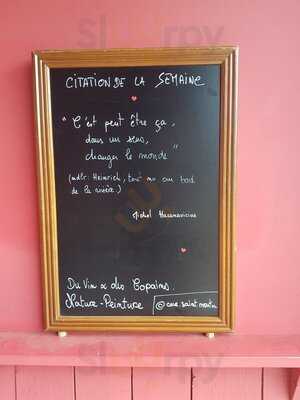 CITATION DE LA SEMAINE
" C'est peut être ça,
dans un sens,
changer le monde "
(mdlr: Heinrich, tout nu au bord
de la rivière.)
Michel Hazanavicius
Du Vin & des Copains.
Nature-Peinture
@cave.saint.martin